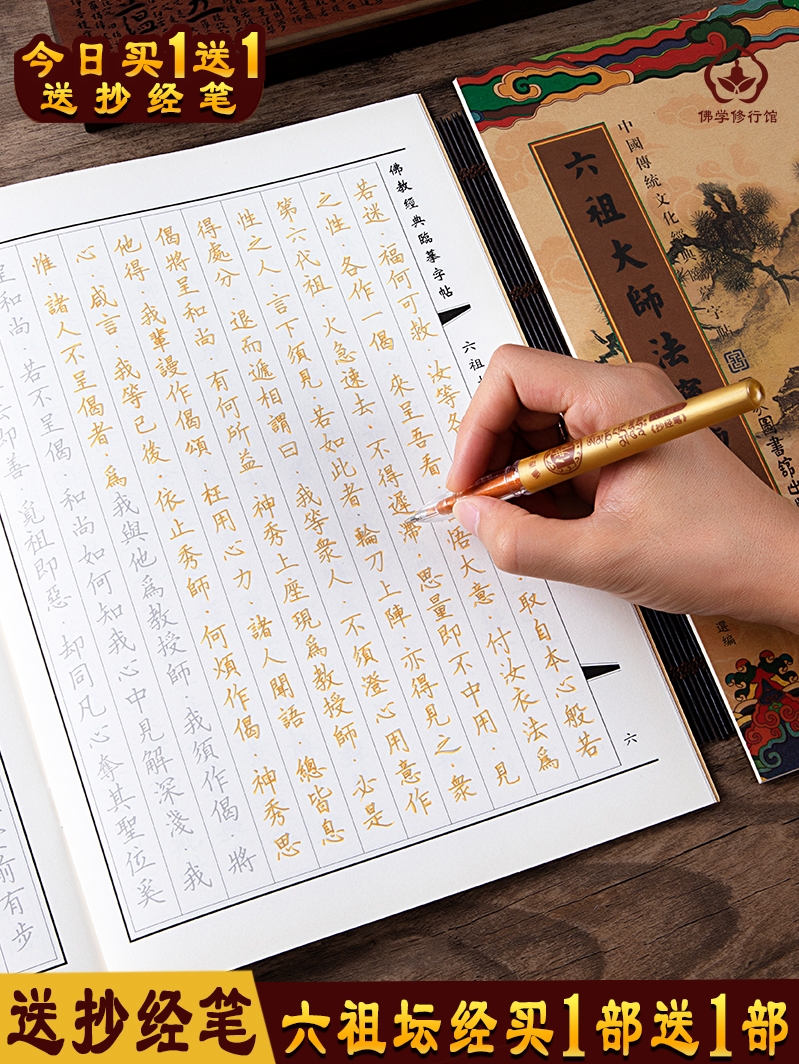 今日买1送1
送抄经笔
佛学修行馆
中國傳統文化經典臨摹字帖
六祖大師法寶
圖書舘出版
選編
佛教經典臨摹字帖
六祖
六
若迷·福何可救·汝等各 取自本心般若
之性 各作一偈 來呈吾看 悟大意·付汝衣法爲
第六代祖·火急速去·不得遲滯·思量即不中用·見
性之人·言下須見·若如此者 輪刀上陣·亦得見之·衆
得處分·退而遞相謂曰 我等衆人·不須澄心用意作
偈將呈和尚·有何所益 神秀上座現爲教授師·必是
他得·我輩謾作偈頌·枉用心力·諸人聞語·總皆息
心 咸言 我等已後·依止秀師·何煩作偈·神秀思
惟·諸人不呈偈者·爲我與他爲教授師·我須作偈·將
呈和尚·若不呈偈·和尚如何知我心中見解深淺·我
法即善·覓祖即惡·却同凡心奪其聖位奚
有步
(抄经笔)
送抄经笔
六祖坛经买1部送1部